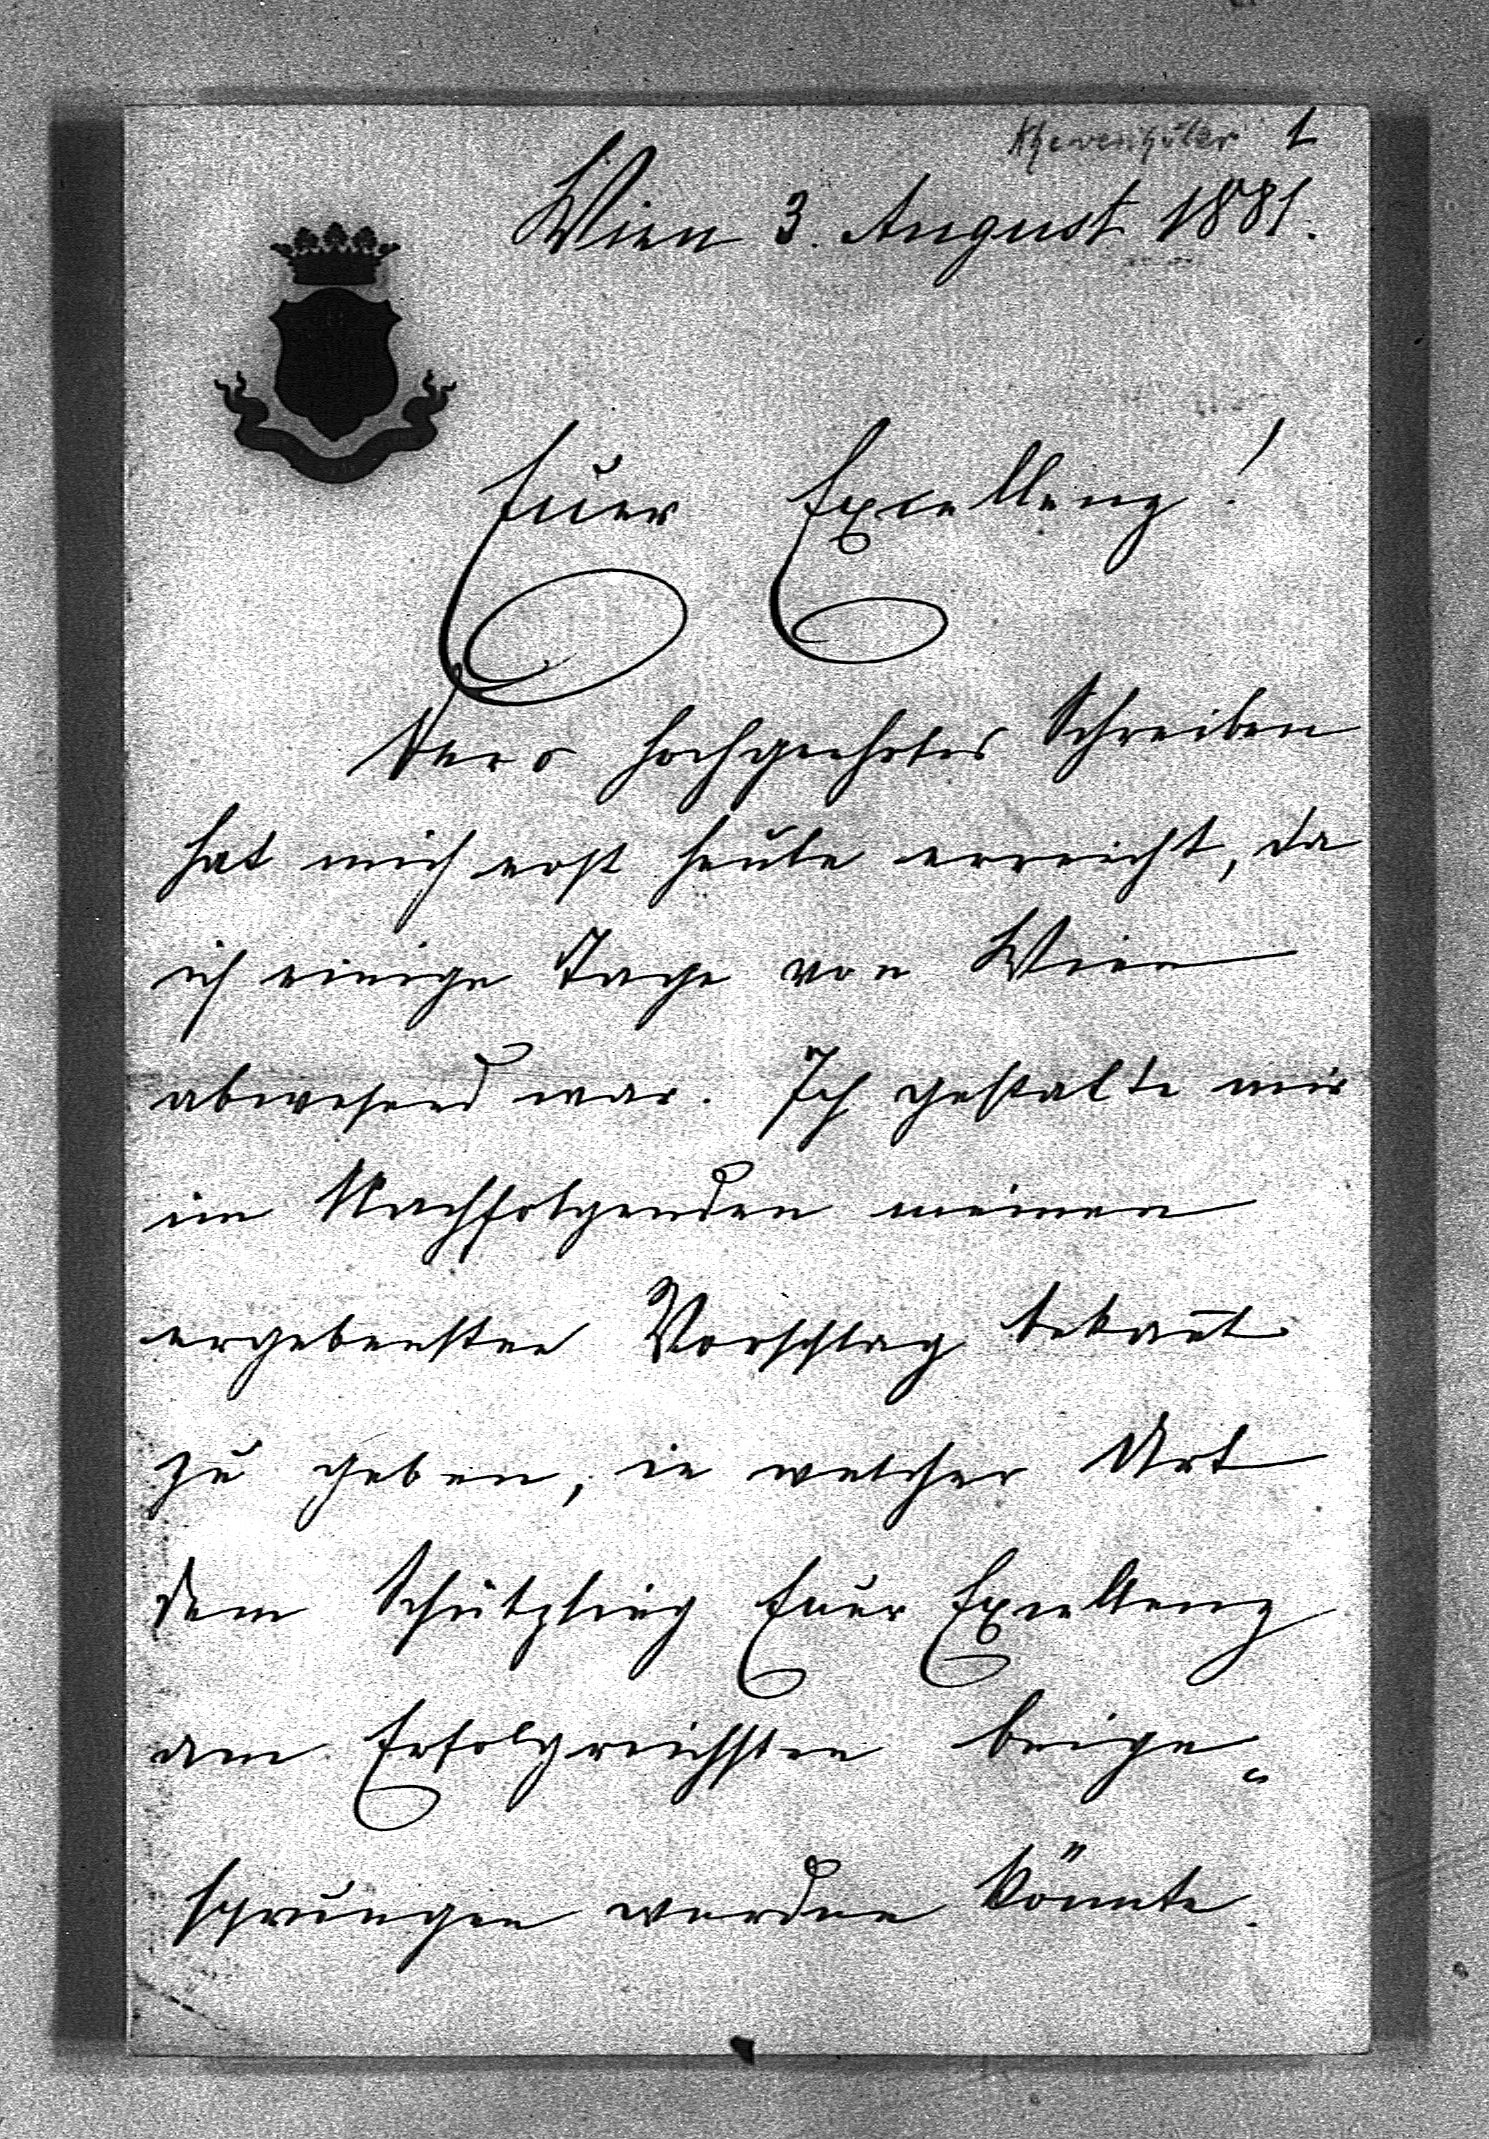 Khevenhüler 1
Wien 3. August 1881.
Euer Excellenz!
Dero hochgeehrtes Schreiben
hat mich erst heute erreicht, da
ich einige Tage von Wien
abwesend war. Ich gestatte mir
im Nachfolgenden meinen
ergebensten Vorschlag bekan̄t
zu geben, in welcher Art
dem Schützling Euer Excellenz
am Erfolgreichsten beige-
sprungen werden könnte.